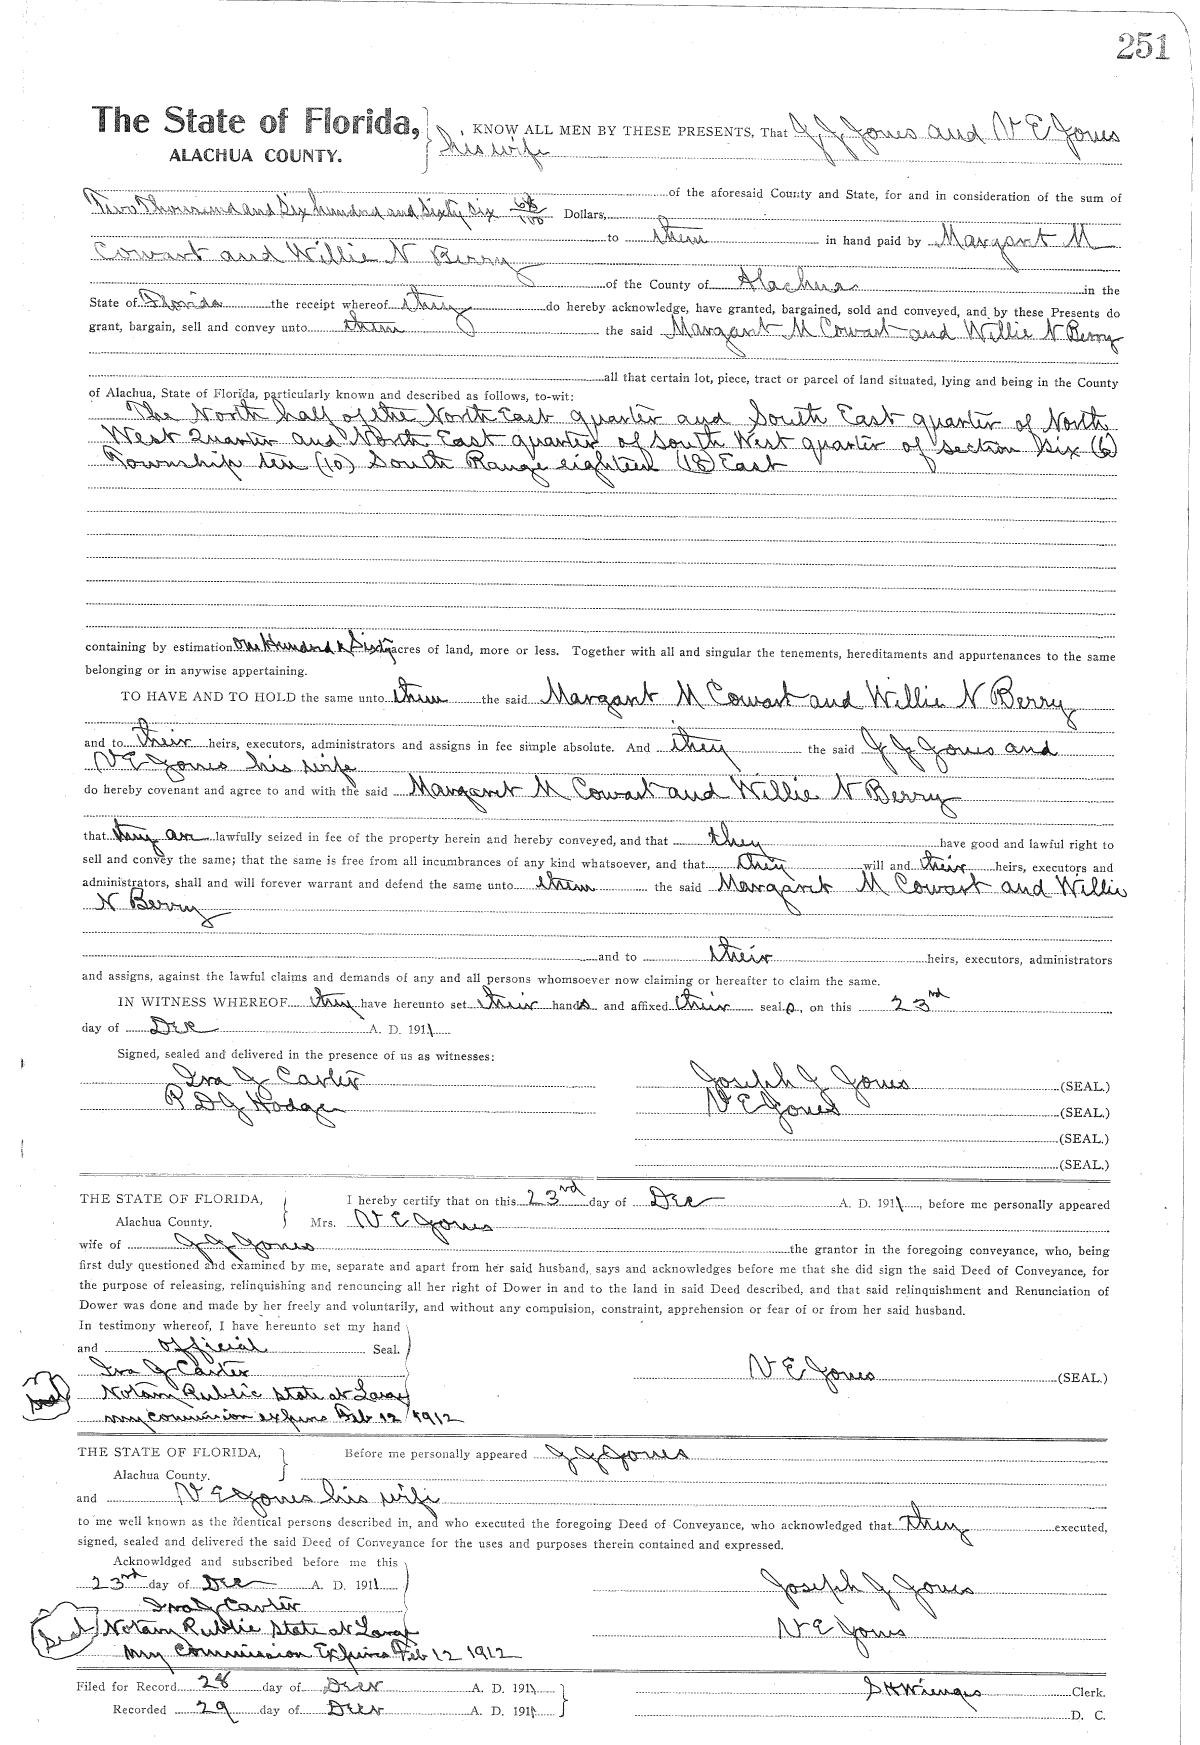 251
The State of Florida, KNOW ALL MEN BY THESE PRESENTS, That J. J. Jones and N E Jones
ALACHUA COUNTY. his wife
of the aforesaid County and State, for and in consideration of the sum of
Two Thousand and Six hundred and Sixty Six 66/100 Dollars,
to them in hand paid by Margaret M
Cowart and Willie N Berry
of the County of Alachua in the
State of Florida the receipt whereof they do hereby acknowledge, have granted, bargained, sold and conveyed, and by these Presents do
grant, bargain, sell and convey unto them the said Margaret M Cowart and Willie N Berry
all that certain lot, piece, tract or parcel of land situated, lying and being in the County
of Alachua, State of Florida, particularly known and described as follows, to-wit:
The North half of the North East quarter and South East quarter of North
West Quarter and North East quarter of South West quarter of section Six (6)
Township ten (10) South Range eighteen (18) East
containing by estimation One Hundred & Sixty acres of land, more or less. Together with all and singular the tenements, hereditaments and appurtenances to the same
belonging or in anywise appertaining.
TO HAVE AND TO HOLD the same unto them the said Margaret M Cowart and Willie N Berry
and to their heirs, executors, administrators and assigns in fee simple absolute. And they the said J J Jones and
N E Jones his wife
do hereby covenant and agree to and with the said Margaret M Cowart and Willie N Berry
that they are lawfully seized in fee of the property herein and hereby conveyed, and that they have good and lawful right to
sell and convey the same; that the same is free from all incumbrances of any kind whatsoever, and that they will and their heirs, executors and
administrators, shall and will forever warrant and defend the same unto them the said Margaret M Cowart and Willie
N Berry
and to their heirs, executors, administrators
and assigns, against the lawful claims and demands of any and all persons whomsoever now claiming or hereafter to claim the same.
IN WITNESS WHEREOF they have hereunto set their hands and affixed their seals, on this 23rd
day of Dec A. D. 1911
Signed, sealed and delivered in the presence of us as witnesses:
Ira J Carter Joseph J Jones (SEAL.)
P D J Hodge N E Jones (SEAL.)
(SEAL.)
(SEAL.)
THE STATE OF FLORIDA, I hereby certify that on this 23rd day of Dec A. D. 1911, before me personally appeared
Alachua County. Mrs. N E Jones
wife of J J Jones the grantor in the foregoing conveyance, who, being
first duly questioned and examined by me, separate and apart from her said husband, says and acknowledges before me that she did sign the said Deed of Conveyance, for
the purpose of releasing, relinquishing and renouncing all her right of Dower in and to the land in said Deed described, and that said relinquishment and Renunciation of
Dower was done and made by her freely and voluntarily, and without any compulsion, constraint, apprehension or fear of or from her said husband.
In testimony whereof, I have hereunto set my hand
and official Seal.
Ira J Carter N E Jones (SEAL.)
seal Notary Public State at Large
My commission expires Feb 12 1912
THE STATE OF FLORIDA, Before me personally appeared J J Jones
Alachua County.
and N E Jones his wife
to me well known as the identical persons described in, and who executed the foregoing Deed of Conveyance, who acknowledged that they executed,
signed, sealed and delivered the said Deed of Conveyance for the uses and purposes therein contained and expressed.
Acknowldged and subscribed before me this
23rd day of Dec A. D. 1911 Joseph J Jones
Ira J Carter
Seal Notary Public State at Large N E Jones
My Commission Expires Feb 12 1912
Filed for Record 28 day of Decr A. D. 1911 S H Wienges Clerk.
Recorded 29 day of Decr A. D. 1911 D. C.